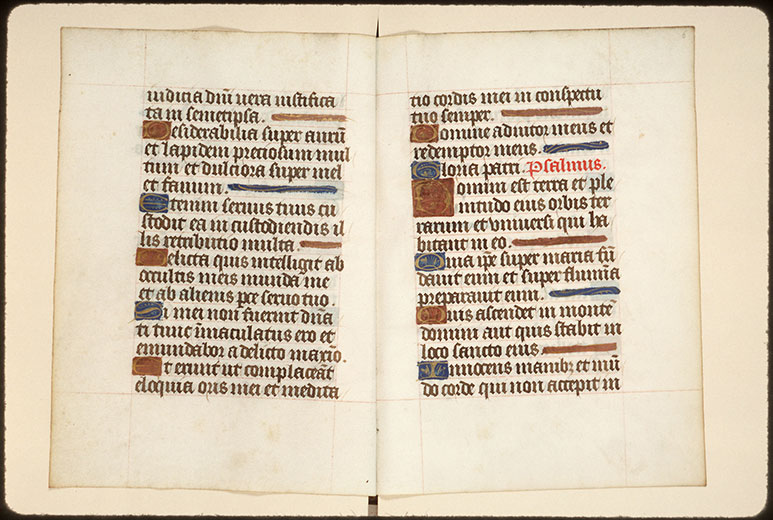 iudicia dm̄ uera iustifica
ta in semetipsa.
Desiderabilia super aurū
et lapidem preciosum mul
tum et dulciora super mel
et fauum.
Etenim seruus tuus cu
stodit ea in custodiendis il
lis retributio multa.
Delicta quis intelligit ab
occultis meis munda me
et ab alienis pce seruo tuo.
Si mei non fuerint dn̄a
ti tunc īmaculatus ero et
emundabor a delicto maxīo.
Et erunt ut complaceāt
eloquia oris mei et medita
tio cordis mei in conspectu
tuo semper.
Domine adiutor meus et
redemptor meus.
Gloria patri. Psalmus.
Domini est terra et ple
nitudo eius orbis ter
rarum et vniuersi qui ha
bitant in eo.
Quia ip̄e super maria fū
dauit eum et super flumīa
preparauit eum.
Quis ascendet in montē
domini aut quis stabit in
loco sancto eius.
Innocens manibꝫ et mū
do corde qui non accepit in